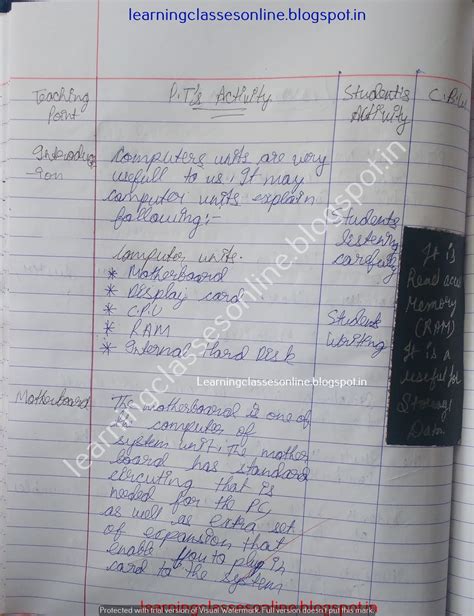 learningclassesonline.blogspot.in
Teaching
Point
P.T's Activity
Student's
Activity
C.B.W
Introduc
-tion
Computers units are very
usefull to us, It may
computer units explain
following:-
Computer units.
* Motherboard
* Display card
* C.P.U
* RAM
* Internal Hard Disk
Students
listening
carefully
Student
Writing
It is
Read
Memory
(RAM)
It is a
useful for
Storage
Data
Learningclassesonline.blogspot.in
Motherboard
The motherboard is one of
computer of
system unit, the mother
board has standard
circuting that is
needed for the PC,
as well as extra set
of expansion that
enable you to plug in
card to the system
learningclassesonline.blogspot.in
Protected with trial version of Visual Watermark. Full version doesn't put this mark.
learningclassesonline.blogspot.in